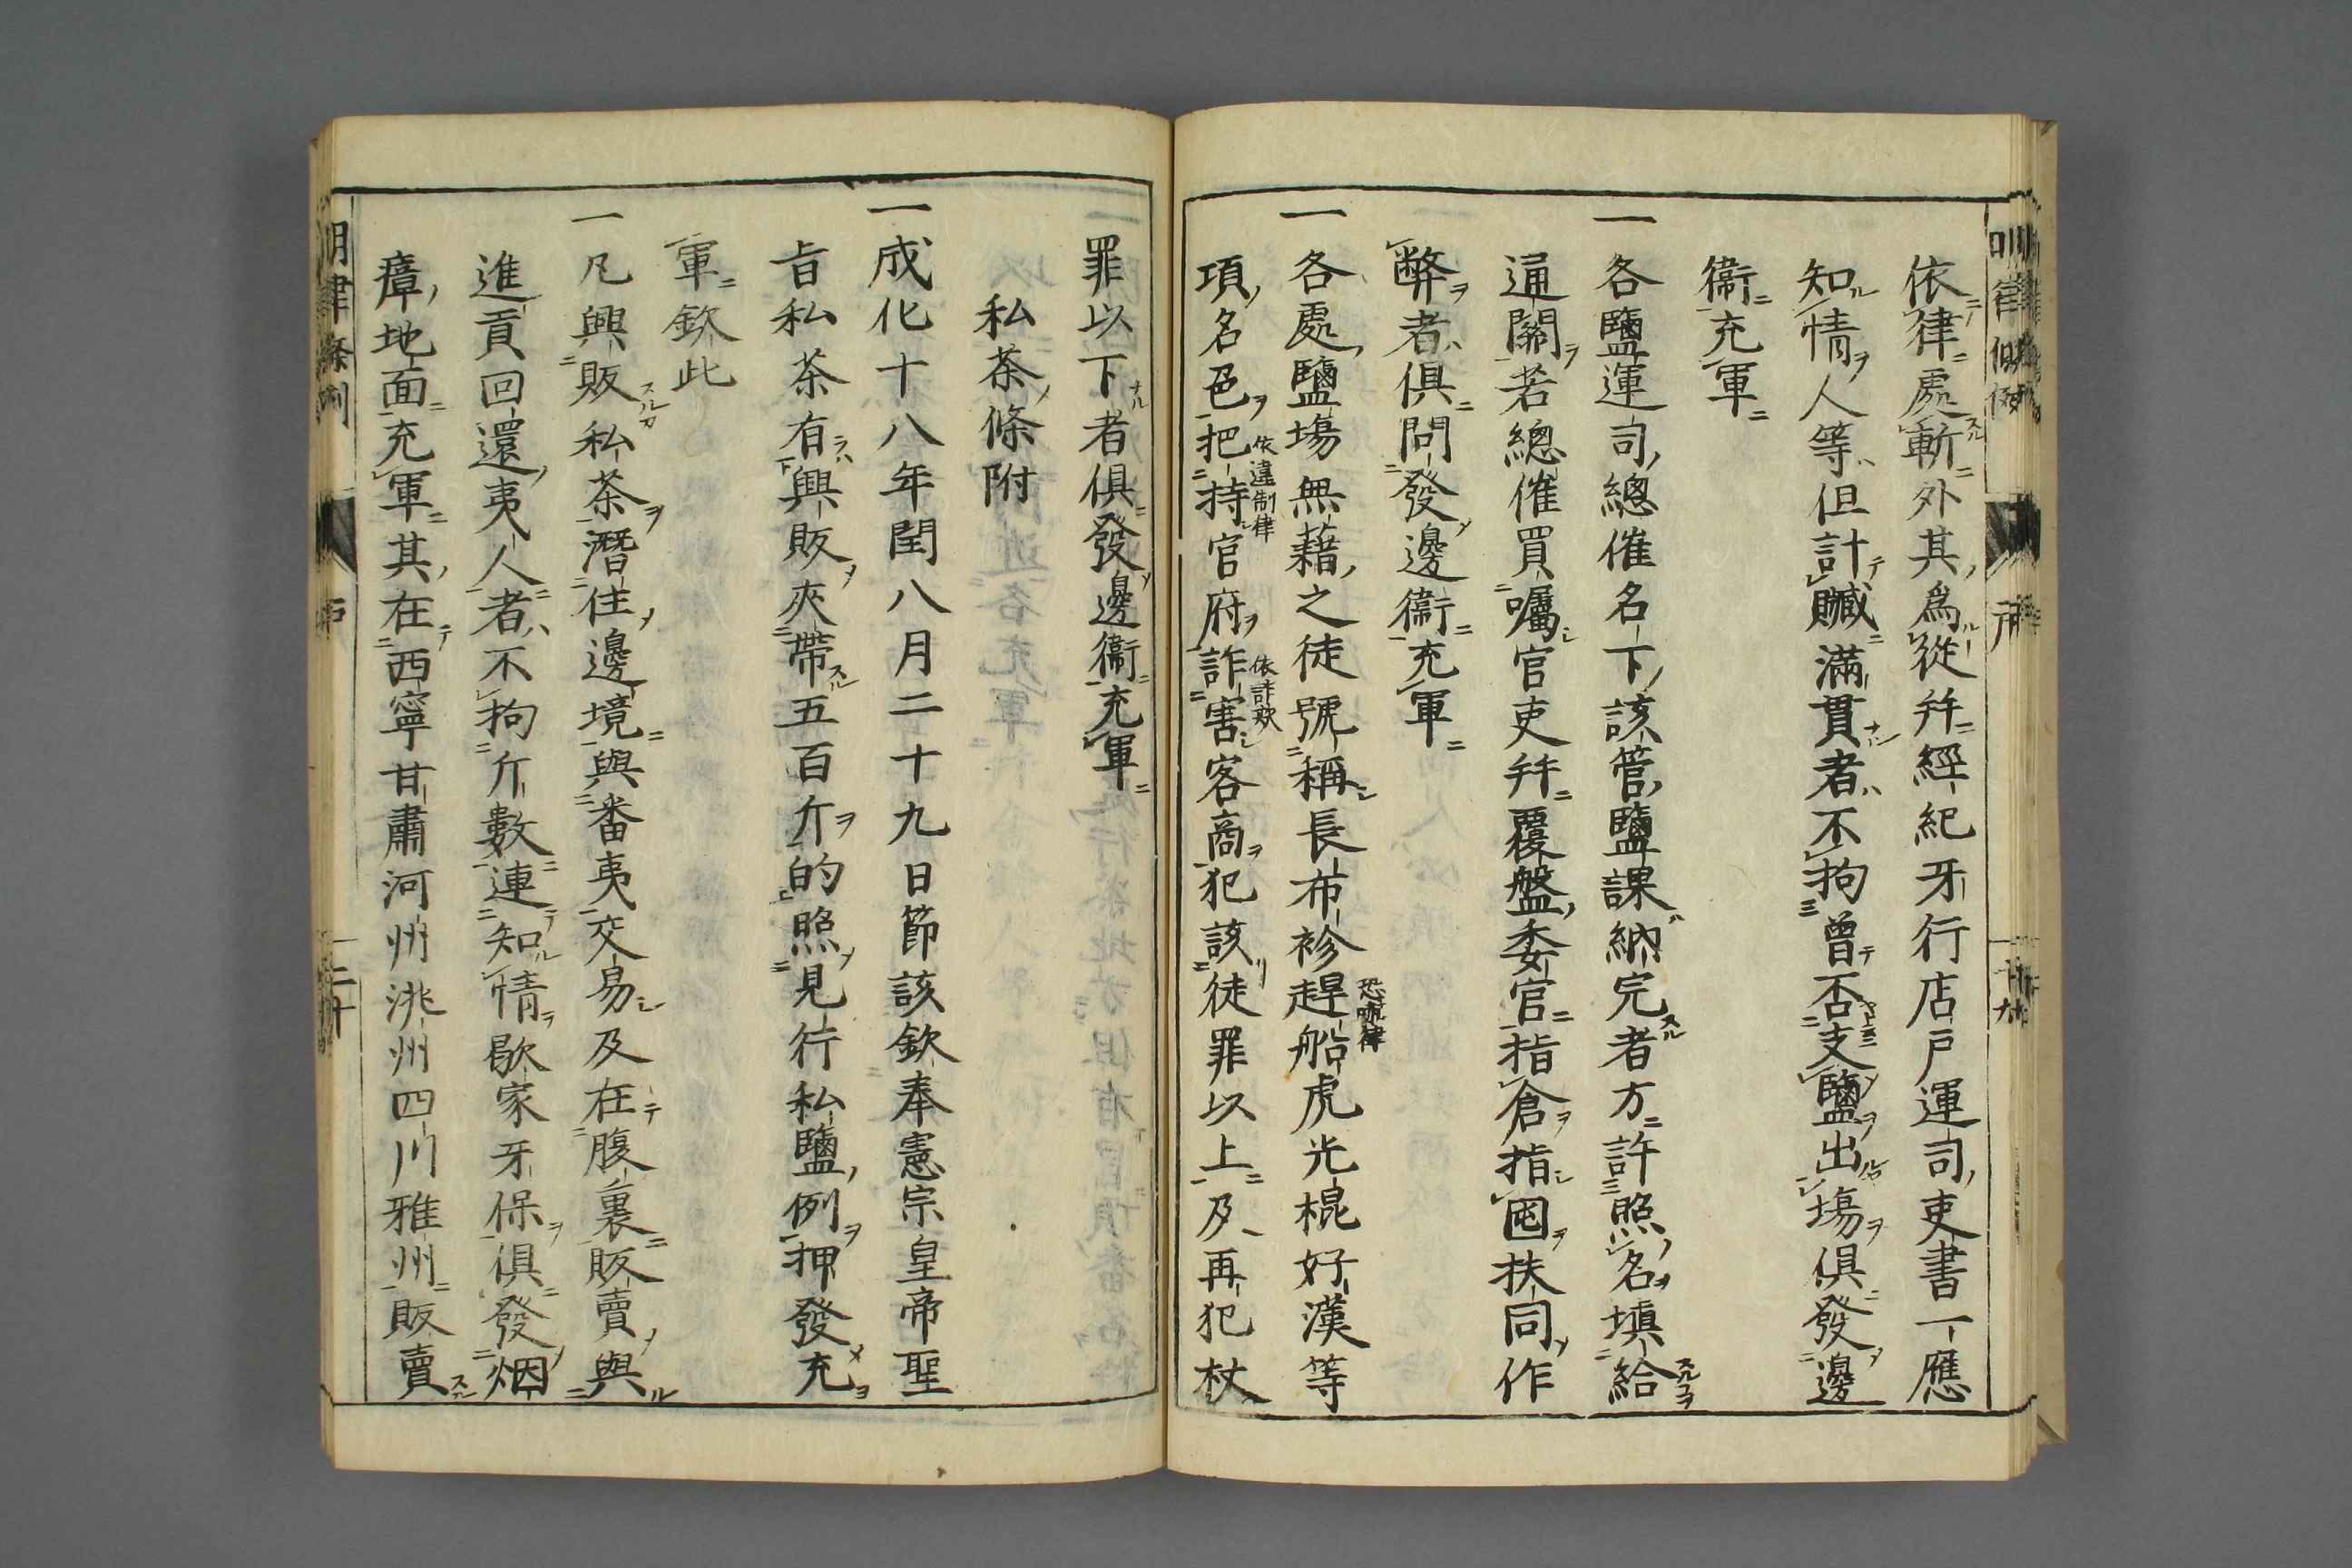 依律處斬外其爲從幷經紀牙行店戶運司吏書一應
知情人等但計贓滿貫者不拘曾否支鹽出場俱發邊
衞充軍
一各鹽運司總催名下該管鹽課納完者方許照名塡給
通關若總催買囑官吏幷覆盤委官指倉指囤扶同作
弊者俱問發邊衞充軍
一各處鹽場無藉之徒號稱長布衫趕船虎光棍好漢等
恐嚇律
項名色把持官府詐害客商犯該徒罪以上及再犯杖
依違制律
依詐欺
罪以下者俱發邊衞充軍
私茶條附
一成化十八年閏八月二十九日節該欽奉憲宗皇帝聖
旨私茶有興販夾帶五百斤的照見行私鹽例押發充
軍欽此
一凡興販私茶潛住邊境與番夷交易及在腹裏販賣與
進貢回還夷人者不拘斤數連知情歇家牙保俱發烟
瘴地面充軍其在西寧甘肅河州洮州四川雅州販賣
明律條例
戶
二十